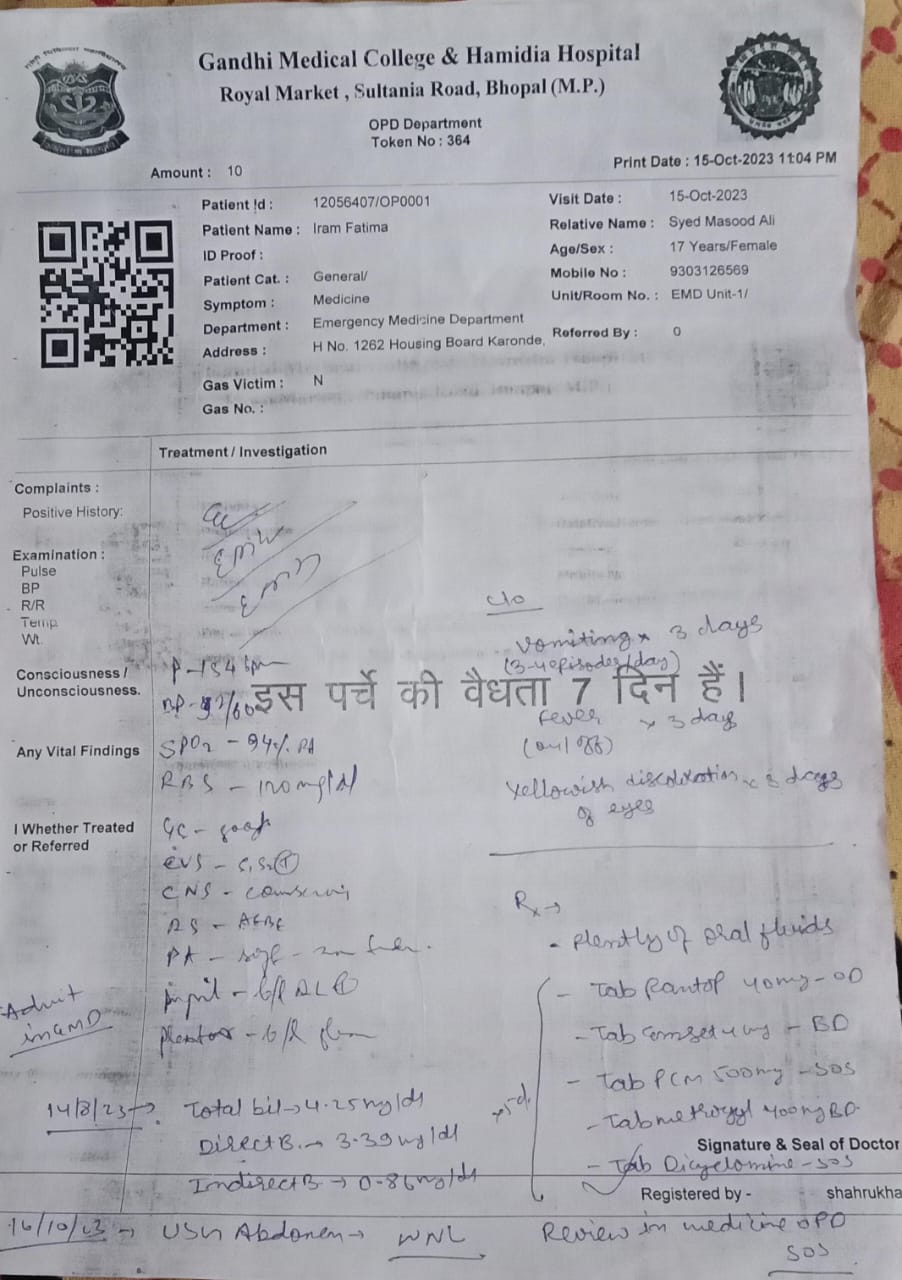 Gandhi Medical College & Hamidia Hospital
Royal Market , Sultania Road, Bhopal (M.P.)
OPD Department
Token No : 364
Amount : 10
Print Date : 15-Oct-2023 11:04 PM
Patient Id : 12056407/OP0001
Visit Date : 15-Oct-2023
Patient Name : Iram Fatima
Relative Name : Syed Masood Ali
ID Proof :
Age/Sex : 17 Years/Female
Patient Cat. : General/
Mobile No : 9303126569
Symptom : Medicine
Unit/Room No. : EMD Unit-1/
Department : Emergency Medicine Department
Referred By : 0
Address : H No. 1262 Housing Board Karonde,
Gas Victim : N
Gas No. :
Treatment / Investigation
Complaints :
Positive History:
Examination :
Pulse
BP
R/R
Temp
Wt.
Consciousness /
Unconsciousness.
Any Vital Findings
I Whether Treated
or Referred
P - 154 bpm
BP -
SPO2 - 94% RA
RBS - 120 mg/dl
GC -
CVS - S1S2 (+)
CNS - conscious
RS - AEBE
PA - soft -
pupil - B/L
Plantar - B/L
Admit
in GMD
c/o
Vomiting x 3 days
(3-4 episodes/day)
इस पर्चे की वैधता 7 दिन हैं।
Fever x 3 days
(on/off)
Yellowish discoloration x 3 days
of eyes
Rx →
- Plently of oral fluids
- Tab Pantop 40mg - OD
- Tab emset 4mg - BD
- Tab PCM 500mg - SOS
- Tab metrogyl 400mg BD
- Tab Dicyclomine - SOS
x 5d.
14/8/23 → Total bil → 4.25 mg/dl
Direct B. → 3.39 mg/dl
Indirect B → 0.86 mg/dl
Signature & Seal of Doctor
Registered by - shahrukha
16/10/23 → USG Abdomen → WNL
Review in medicine OPD
SOS